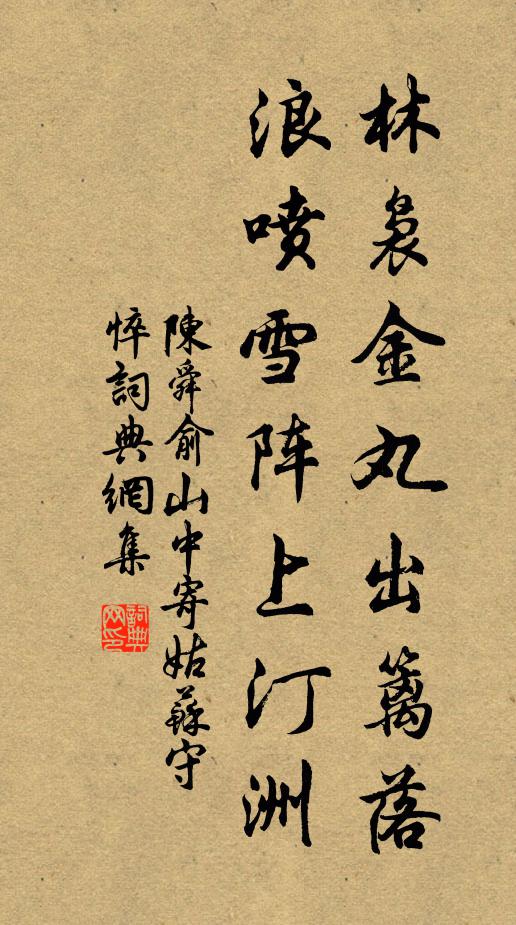 林袅金丸出篱落
浪喷雪阵上汀洲
陳舜俞山中寄姑蘇守
悴詞典網集
詞典網印